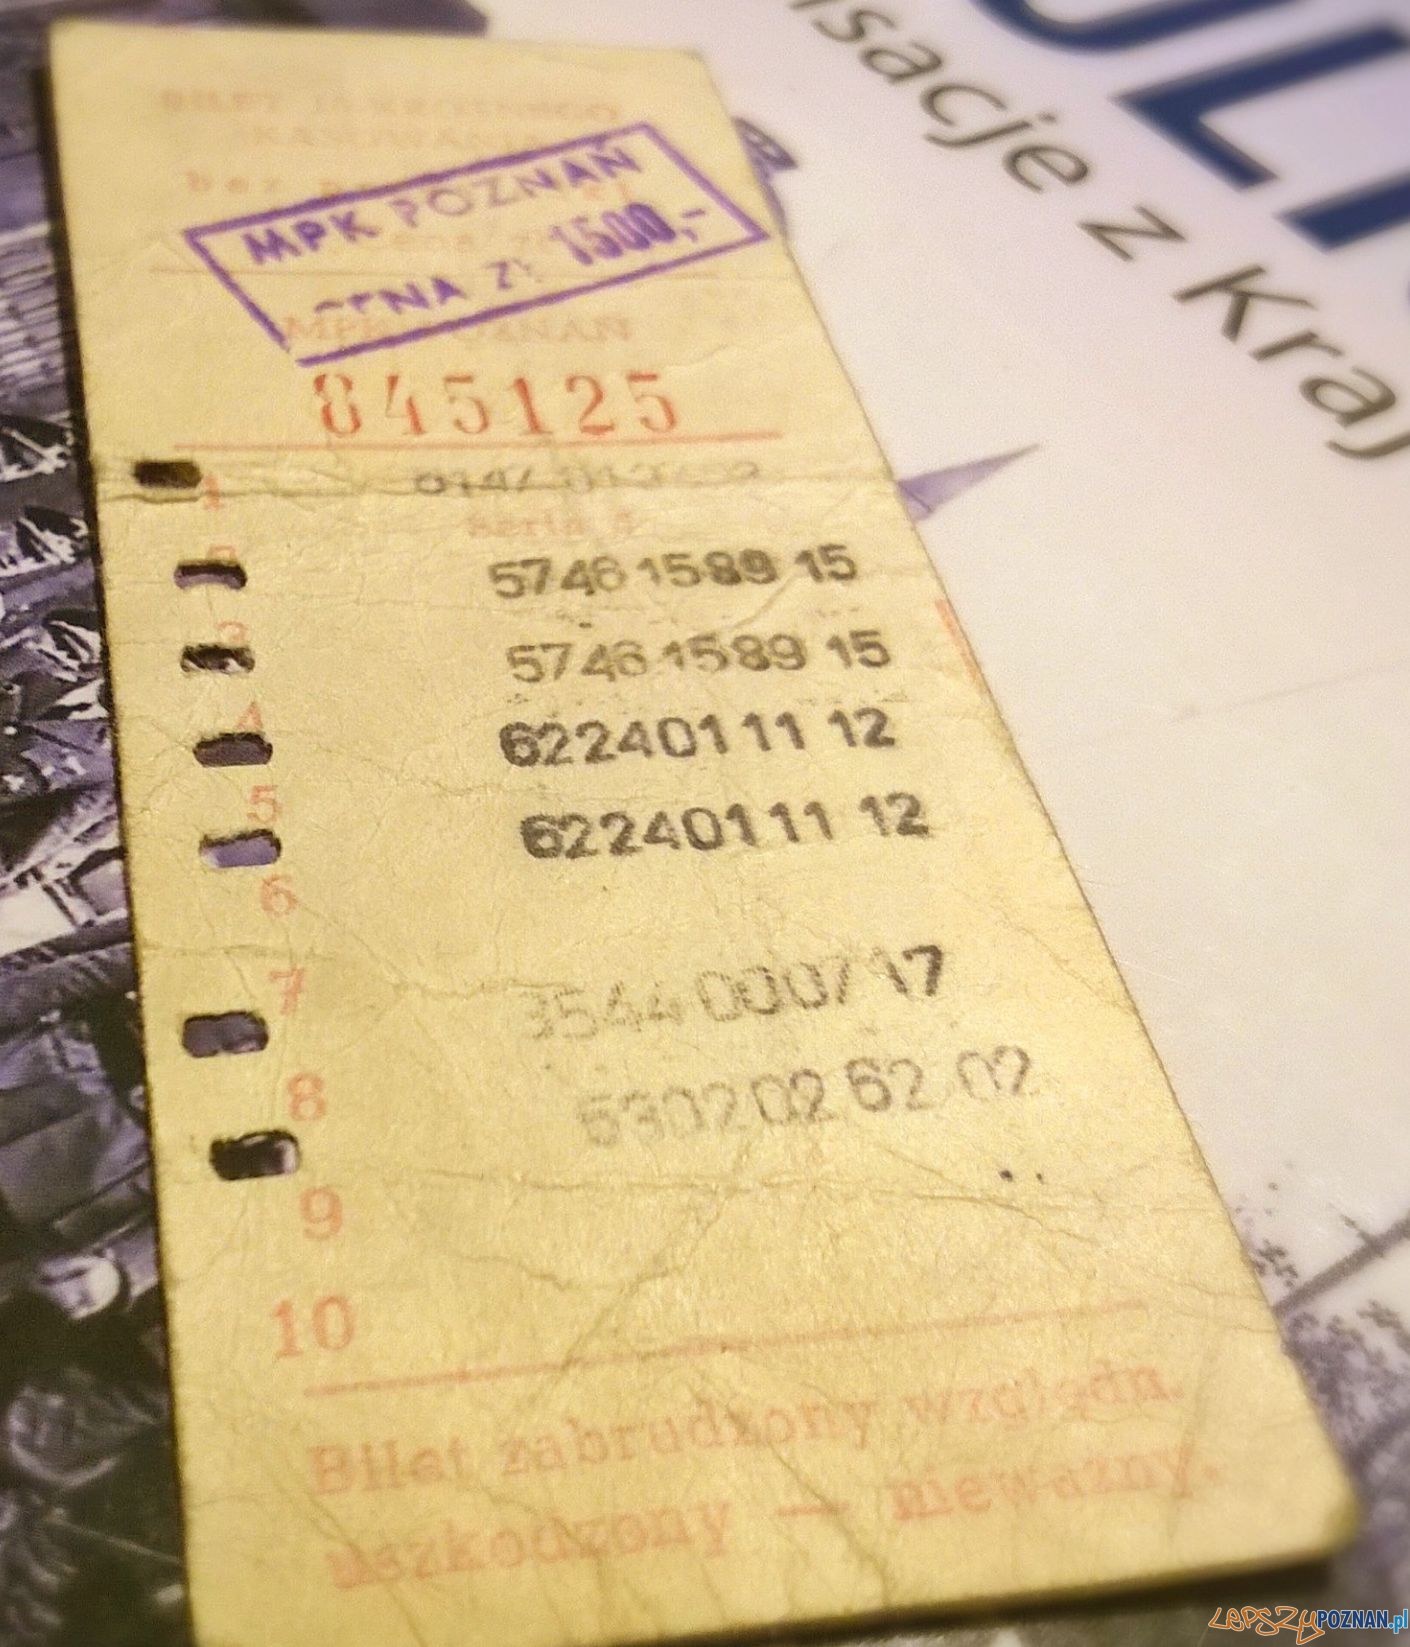 BILET 10 KROTNEGO
KASOWANIA
bez
MPK POZNAŃ
CENA ZŁ 1500,-
MPK POZNAŃ
845125
1
Seria
2
57461589 15
3
57461589 15
4
62240111 12
5
62240111 12
6
7
3544 0007 17
8
530202 62 02
9
10
Bilet zabrudzony względn.
uszkodzony — nieważny.
sacje z Kraj
LEPSZYPOZNAN.pl